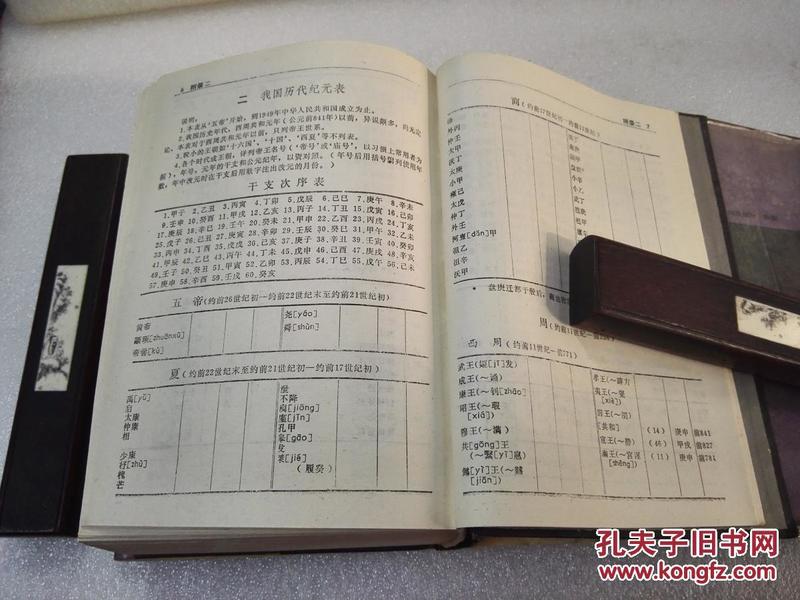 6 附录二
二 我国历代纪元表
说明:
1.本表从“五帝”开始,到1949年中华人民共和国成立为止。
2.我国历史年代,西周共和元年(公元前841年)以前,异说颇多,尚无定
论。本表对于西周共和元年以前,只列帝王世系。
3.较小的王朝如“十六国”、“十国”、“西夏”等不列表。
干支次序表
1.甲子 2.乙丑 3.丙寅 4.丁卯 5.戊辰 6.己巳 7.庚午 8.辛未
9.壬申 10.癸酉 11.甲戌 12.乙亥 13.丙子 14.丁丑 15.戊寅 16.己卯
17.庚辰 18.辛巳 19.壬午 20.癸未 21.甲申 22.乙酉 23.丙戌 24.丁亥
25.戊子 26.己丑 27.庚寅 28.辛卯 29.壬辰 30.癸巳 31.甲午 32.乙未
33.丙申 34.丁酉 35.戊戌 36.己亥 37.庚子 38.辛丑 39.壬寅 40.癸卯
41.甲辰 42.乙巳 43.丙午 44.丁未 45.戊申 46.己酉 47.庚戌 48.辛亥
49.壬子 50.癸丑 51.甲寅 52.乙卯 53.丙辰 54.丁巳 55.戊午 56.己未
57.庚申 58.辛酉 59.壬戌 60.癸亥
五 帝(约前26世纪初—约前22世纪末至约前21世纪初)
黄帝
颛顼[zhuānxū]
帝喾[kù]
尧[yáo]
舜[shùn]
夏(约前22世纪末至约前21世纪初—约前17世纪初)
禹[yǔ]
启
太康
仲康
相
少康
杼[zhù]
槐
芒
泄
不降
扃[jiōng]
廑[jǐn]
孔甲
皋[gāo]
发
桀[jié]
(履癸)
附录二 7
商(约前17世纪初—约前11世纪)
汤
外丙
仲壬
太甲
沃丁
太庚
小甲
雍己
太戊
仲丁
外壬
河亶[dǎn]甲
祖乙
祖辛
沃甲
周(约前11世纪—前256)
西 周(约前11世纪—前771)
武王(姬[jī]发)
成王(~诵)
康王(~钊[zhāo])
昭王(~瑕
[xiá])
穆王(~满)
共[gōng]王
(~繄[yī]扈)
懿[yì]王(~囏
[jiān])
孝王(~辟方)
夷王(~燮
[xiè])
厉王(~胡)
[共和] (14) 庚申 前841
宣王(~静) (46) 甲戌 前827
幽王(~宫涅
[shēng]) (11) 庚申 前781
孔夫子旧书网
www.kongfz.com